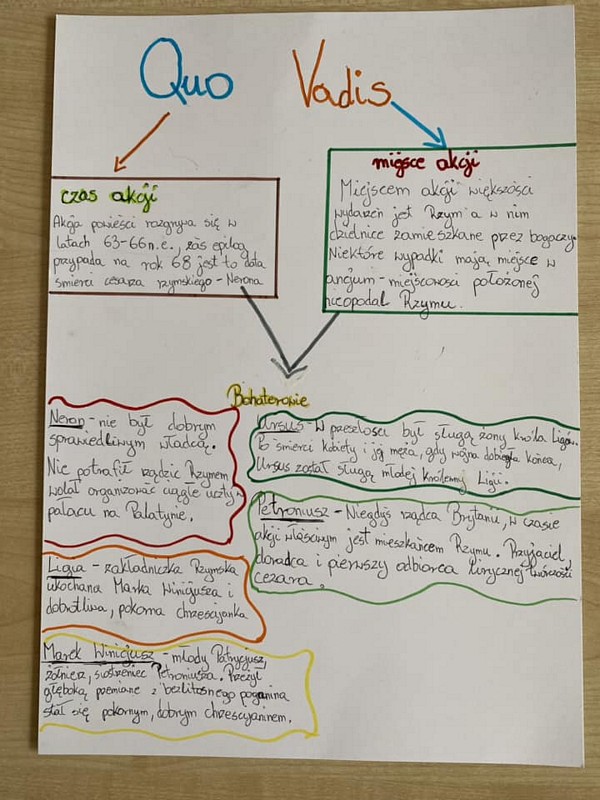 Quo Vadis
czas akcji
Akcja powieści rozgrywa się w
latach 63-66 n.e., zaś epilog
przypada na rok 68 jest to data
śmierci cesarza rzymskiego - Nerona
miejsce akcji
Miejscem akcji większości
wydarzeń jest Rzym a w nim
dzielnice zamieszkane przez bogaczy.
Niektóre wypadki mają miejsce w
ancjum - miejscowości położonej
nieopodal Rzymu.
Bohaterowie
Neron - nie był dobrym
sprawiedliwym władcą.
Nie potrafił rządzić Rzymem
wolał organizować ciągle uczty
pałacu na Palatynie.
Ligia - zakładniczka Rzymska
ukochana Marka Winicjusza i
dobrotliwa, pokorna chrześcijanka
Marek Winicjusz - młody Patrycjusz,
żołnierz, siostrzeniec Petroniusza. Przeżył
głęboką przemianę z bezlitosnego poganina
stał się pokornym, dobrym chrześcijaninem.
Ursus - W przeszłości był sługą żony króla Ligów.
Po śmierci kobiety i jej męża, gdy wojna dobiegła końca,
Ursus został sługą młodej królewny Ligii.
Petroniusz - Niegdyś rządca Brytanii, w czasie
akcji właściwym jest mieszkańcem Rzymu. Przyjaciel,
doradca i pierwszy odbiorca lirycznej twórczości
cezara.